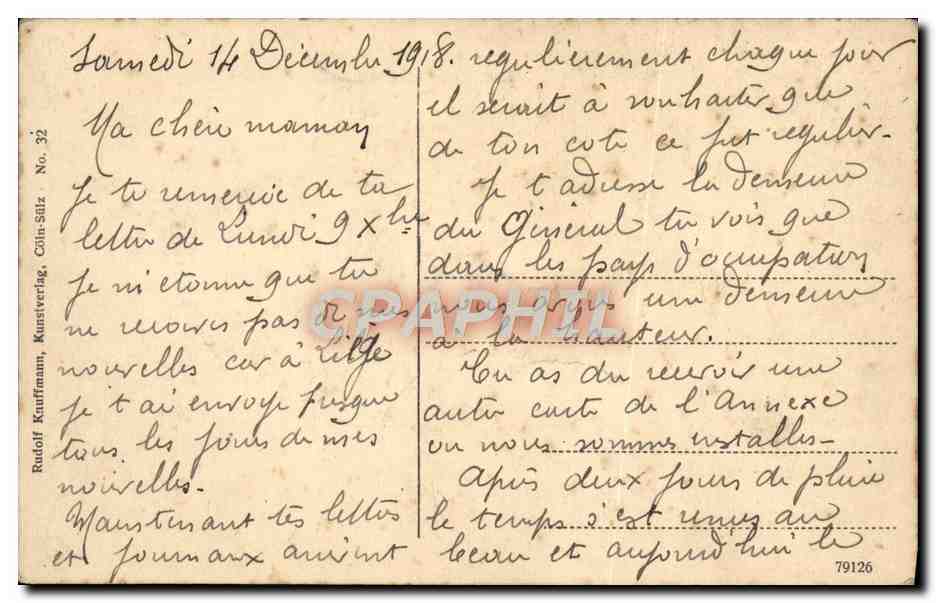 Samedi 14 Décembre 1918.
Ma chère maman
Je te remercie de ta
lettre de Lundi 9 Xbre
Je m'etonne que tu
ne recoives pas de mes
nouvelles car à Liège
je t'ai envoye presque
tous les jours de mes
nouvelles.
Maintenant tes lettres
et journaux arrivent
regulierement chaque jour
il serait à souhaiter que
de ton cote ce fut regulier.
Je t'adresse la demeure
du Général tu vois que
dans les pays d'occupation
nous avons une demeure
à la hauteur.
Tu as du recevoir une
autre carte de l'Annexe
ou nous sommes installes.
Après deux jours de pluie
le temps s'est remis au
beau et aujourd'hui le
Rudolf Knuffmann, Kunstverlag, Cöln-Sülz No. 32
79126
CPAPHIL